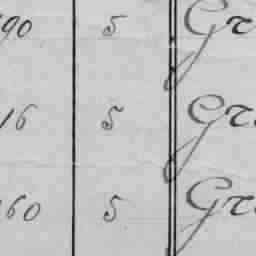 90 5 Gr
16 5 Gr
60 5 Gr